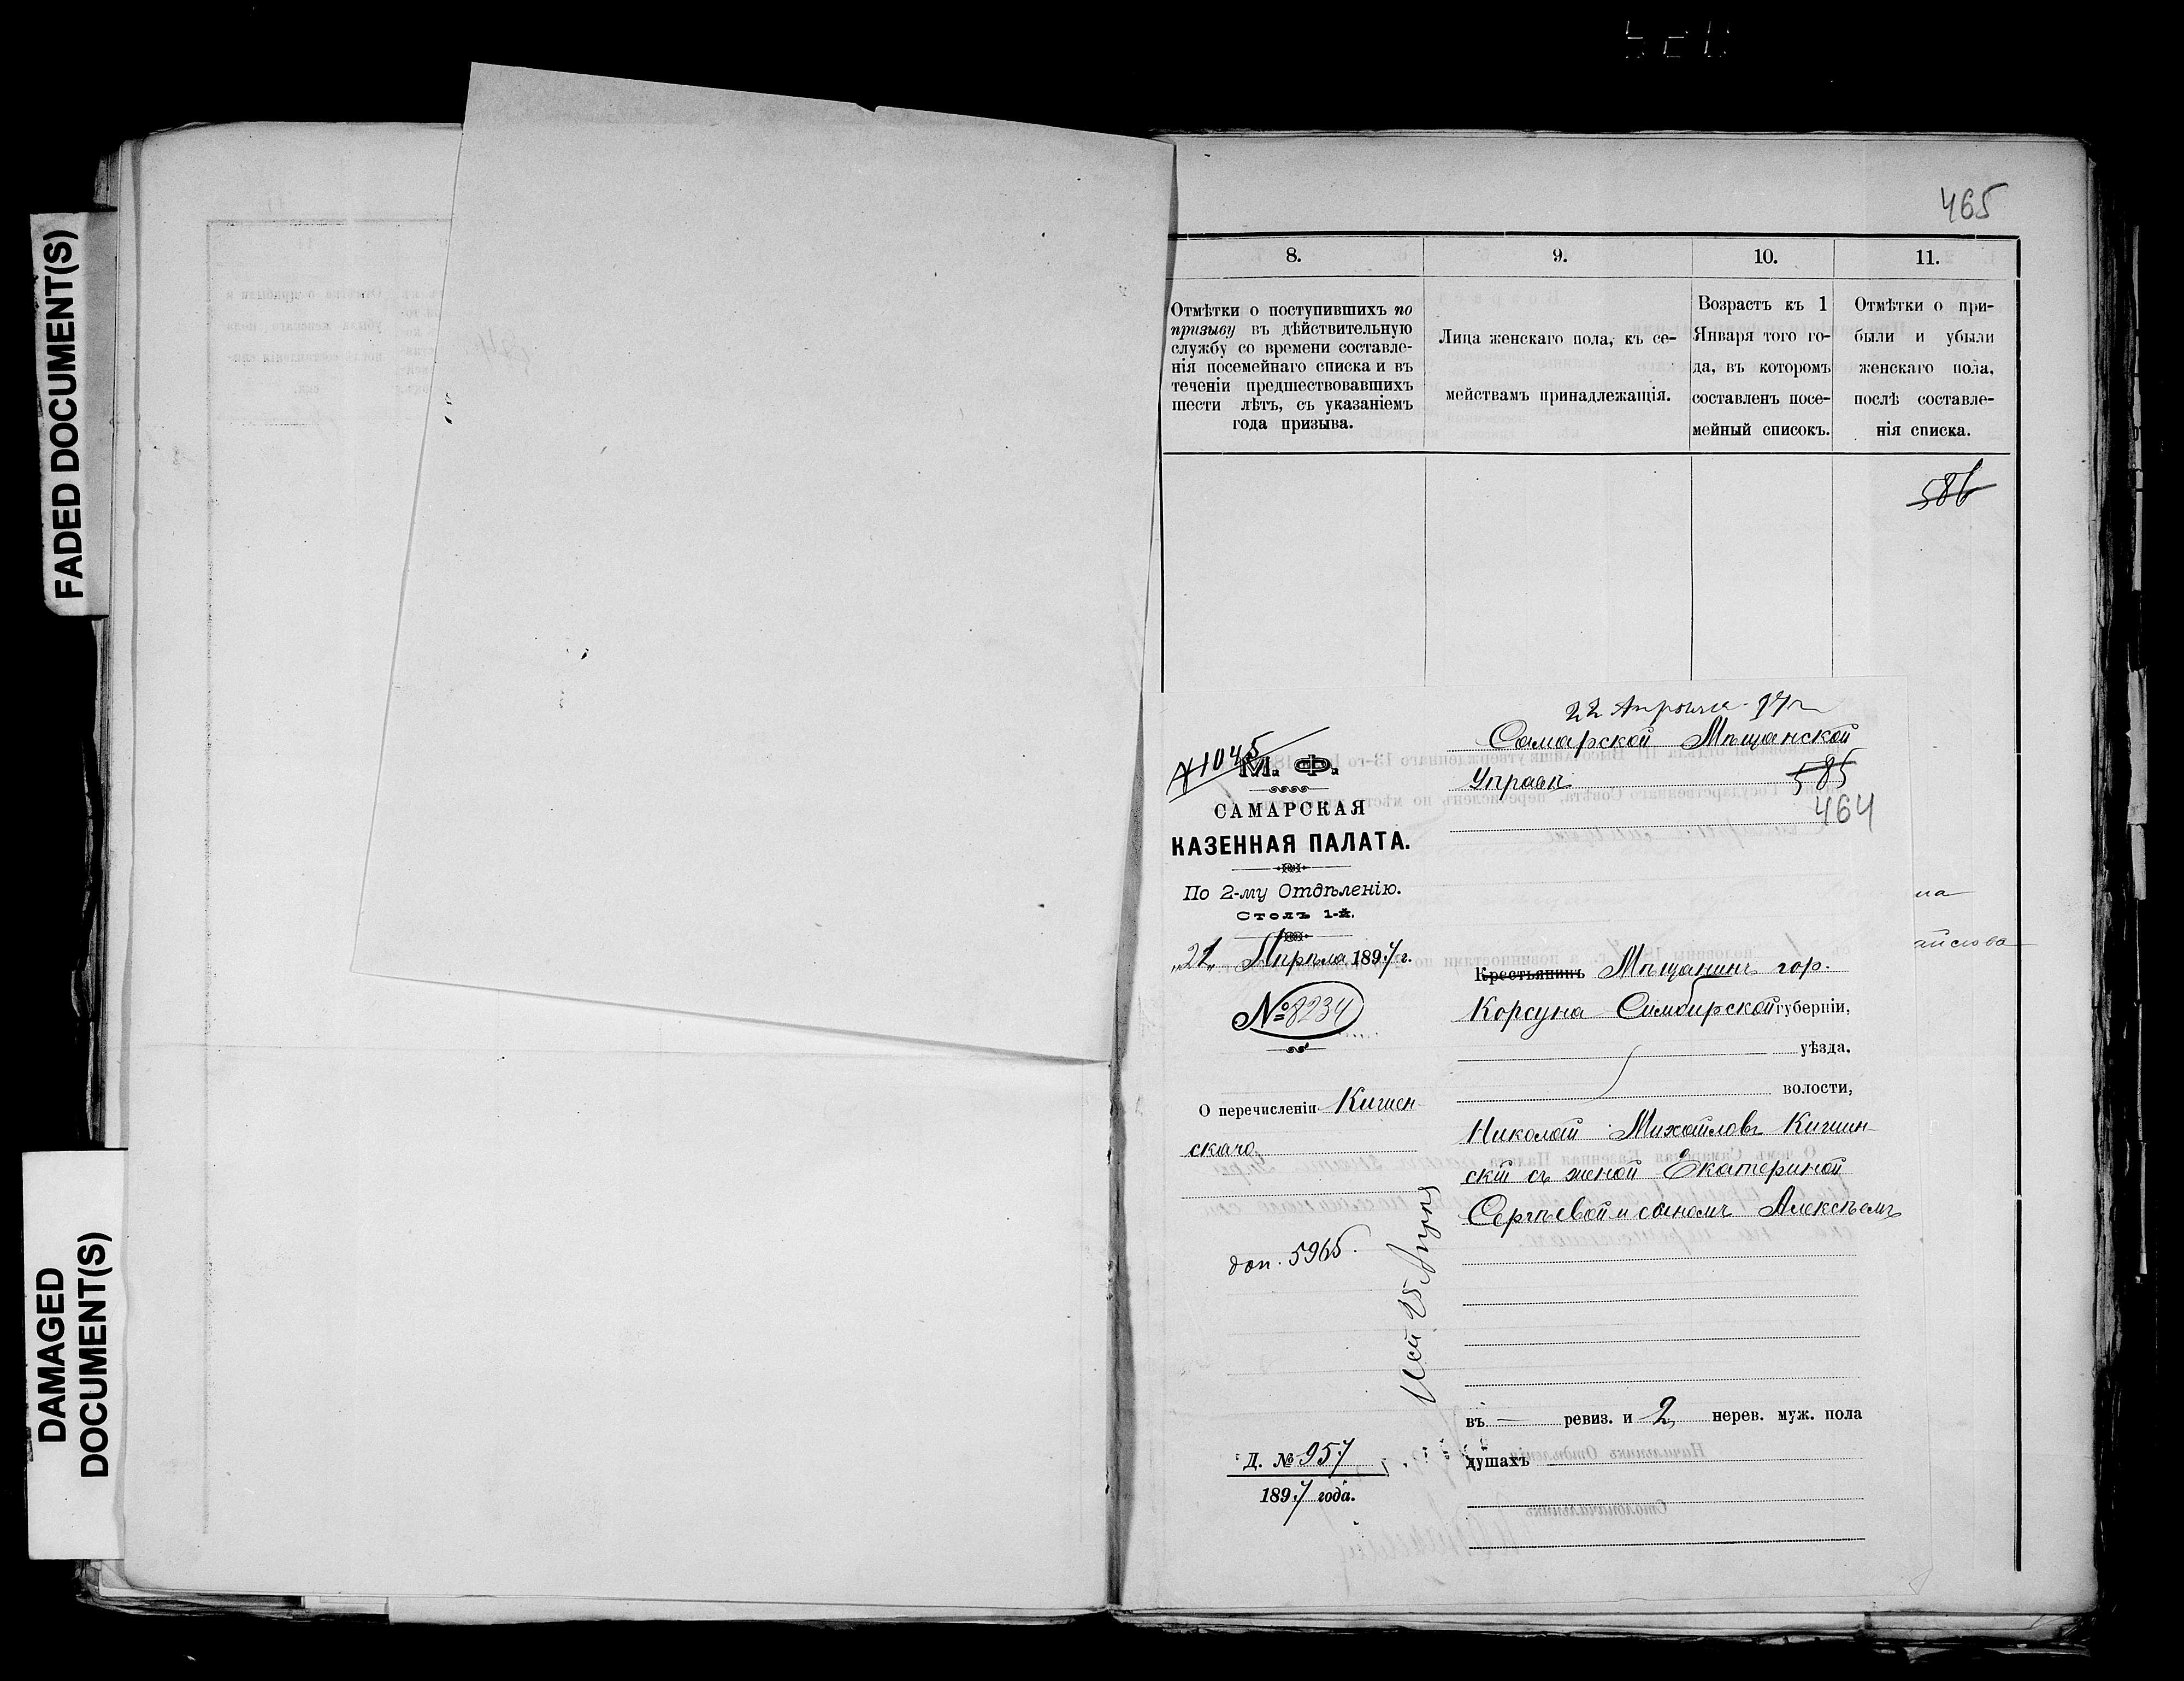 FADED DOCUMENT(S)
DAMAGED
DOCUMENT(S)
465
8.
9.
10.
11.
Отмѣтки о поступившихъ по
призыву въ дѣйствительную
службу со времени составле-
нія посемейнаго списка и въ
теченіи предшествовавшихъ
шести лѣтъ, съ указаніемъ
года призыва.
Лица женскаго пола, къ се-
мействамъ принадлежащія.
Возрастъ къ 1
Января того го-
да, въ которомъ
составленъ посе-
мейный списокъ.
Отмѣтки о при-
были и убыли
женскаго пола,
послѣ составле-
нія списка.
586
№ 1045
М. Ф.
САМАРСКАЯ
КАЗЕННАЯ ПАЛАТА.
По 2-му Отдѣленію.
Столъ 1-й.
„21„ Апрѣля 1897 г.
№ 8234
О перечисленіи Кишен
скаго
доп. 5965.
25 Апрѣля
Д. № 957
1897 года.
22 Апрѣля 97 г
Самарской Мѣщанской
Управѣ
585
464
Крестьянинъ Мѣщанинъ гор.
Корсуна Симбирской губерніи,
уѣзда.
волости,
Николай Михайловъ Кишин-
скій съ женой Екатериной
Сергѣевой и сыномъ Алексѣемъ
въ — ревиз. и 2 нерев. муж. пола
душахъ
на